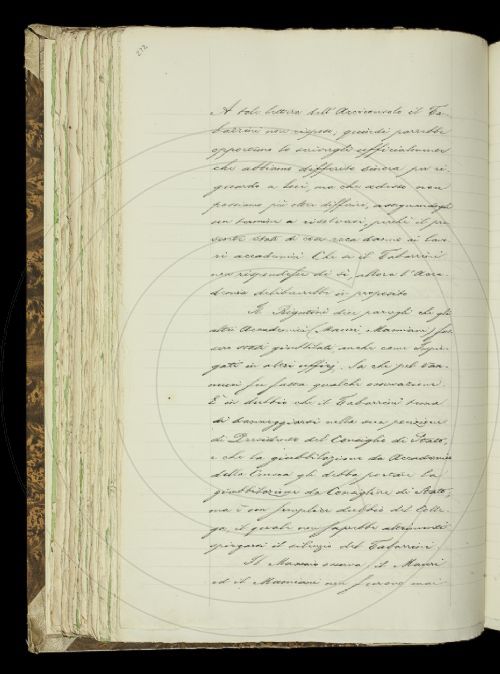 272
A tale lettera dell'Arciconsolo il Ta-
barrini non rispose, quindi parrebbe
opportuno lo scrivergli ufficialmente
che abbiamo differito finora per ri-
guardo a lui, ma che adesso non
possiamo più oltre differire, assegnandogli
un termine a risolversi, perché il pre-
sente stato di cose reca danno ai lavo-
ri accademici. Che se il Tabarrini
non rispondesse di sì, allora l'Acca-
demia delibererebbe in proposito.
Il Rigutini dice parergli che gli
altri Accademici (Mauri, Mamiani) fos-
sero stati giubbilati anche come Impie-
gati in altri uffizj. Sa che pel Van-
nucci fu fatta qualche osservazione.
È in dubbio che il Tabarrini tema
di danneggiarsi nella sua posizione
di Presidente del Consiglio di Stato,
e che la giubbilazione da Accademico
della Crusca gli debba portare la
giubbilazione da Consigliere di Stato;
ma è un semplice dubbio del Colle-
ga, il quale non saprebbe altrimenti
spiegarsi il silenzio del Tabarrini.
Il osserva, il Mauri
ed il Mamiani non furono mai